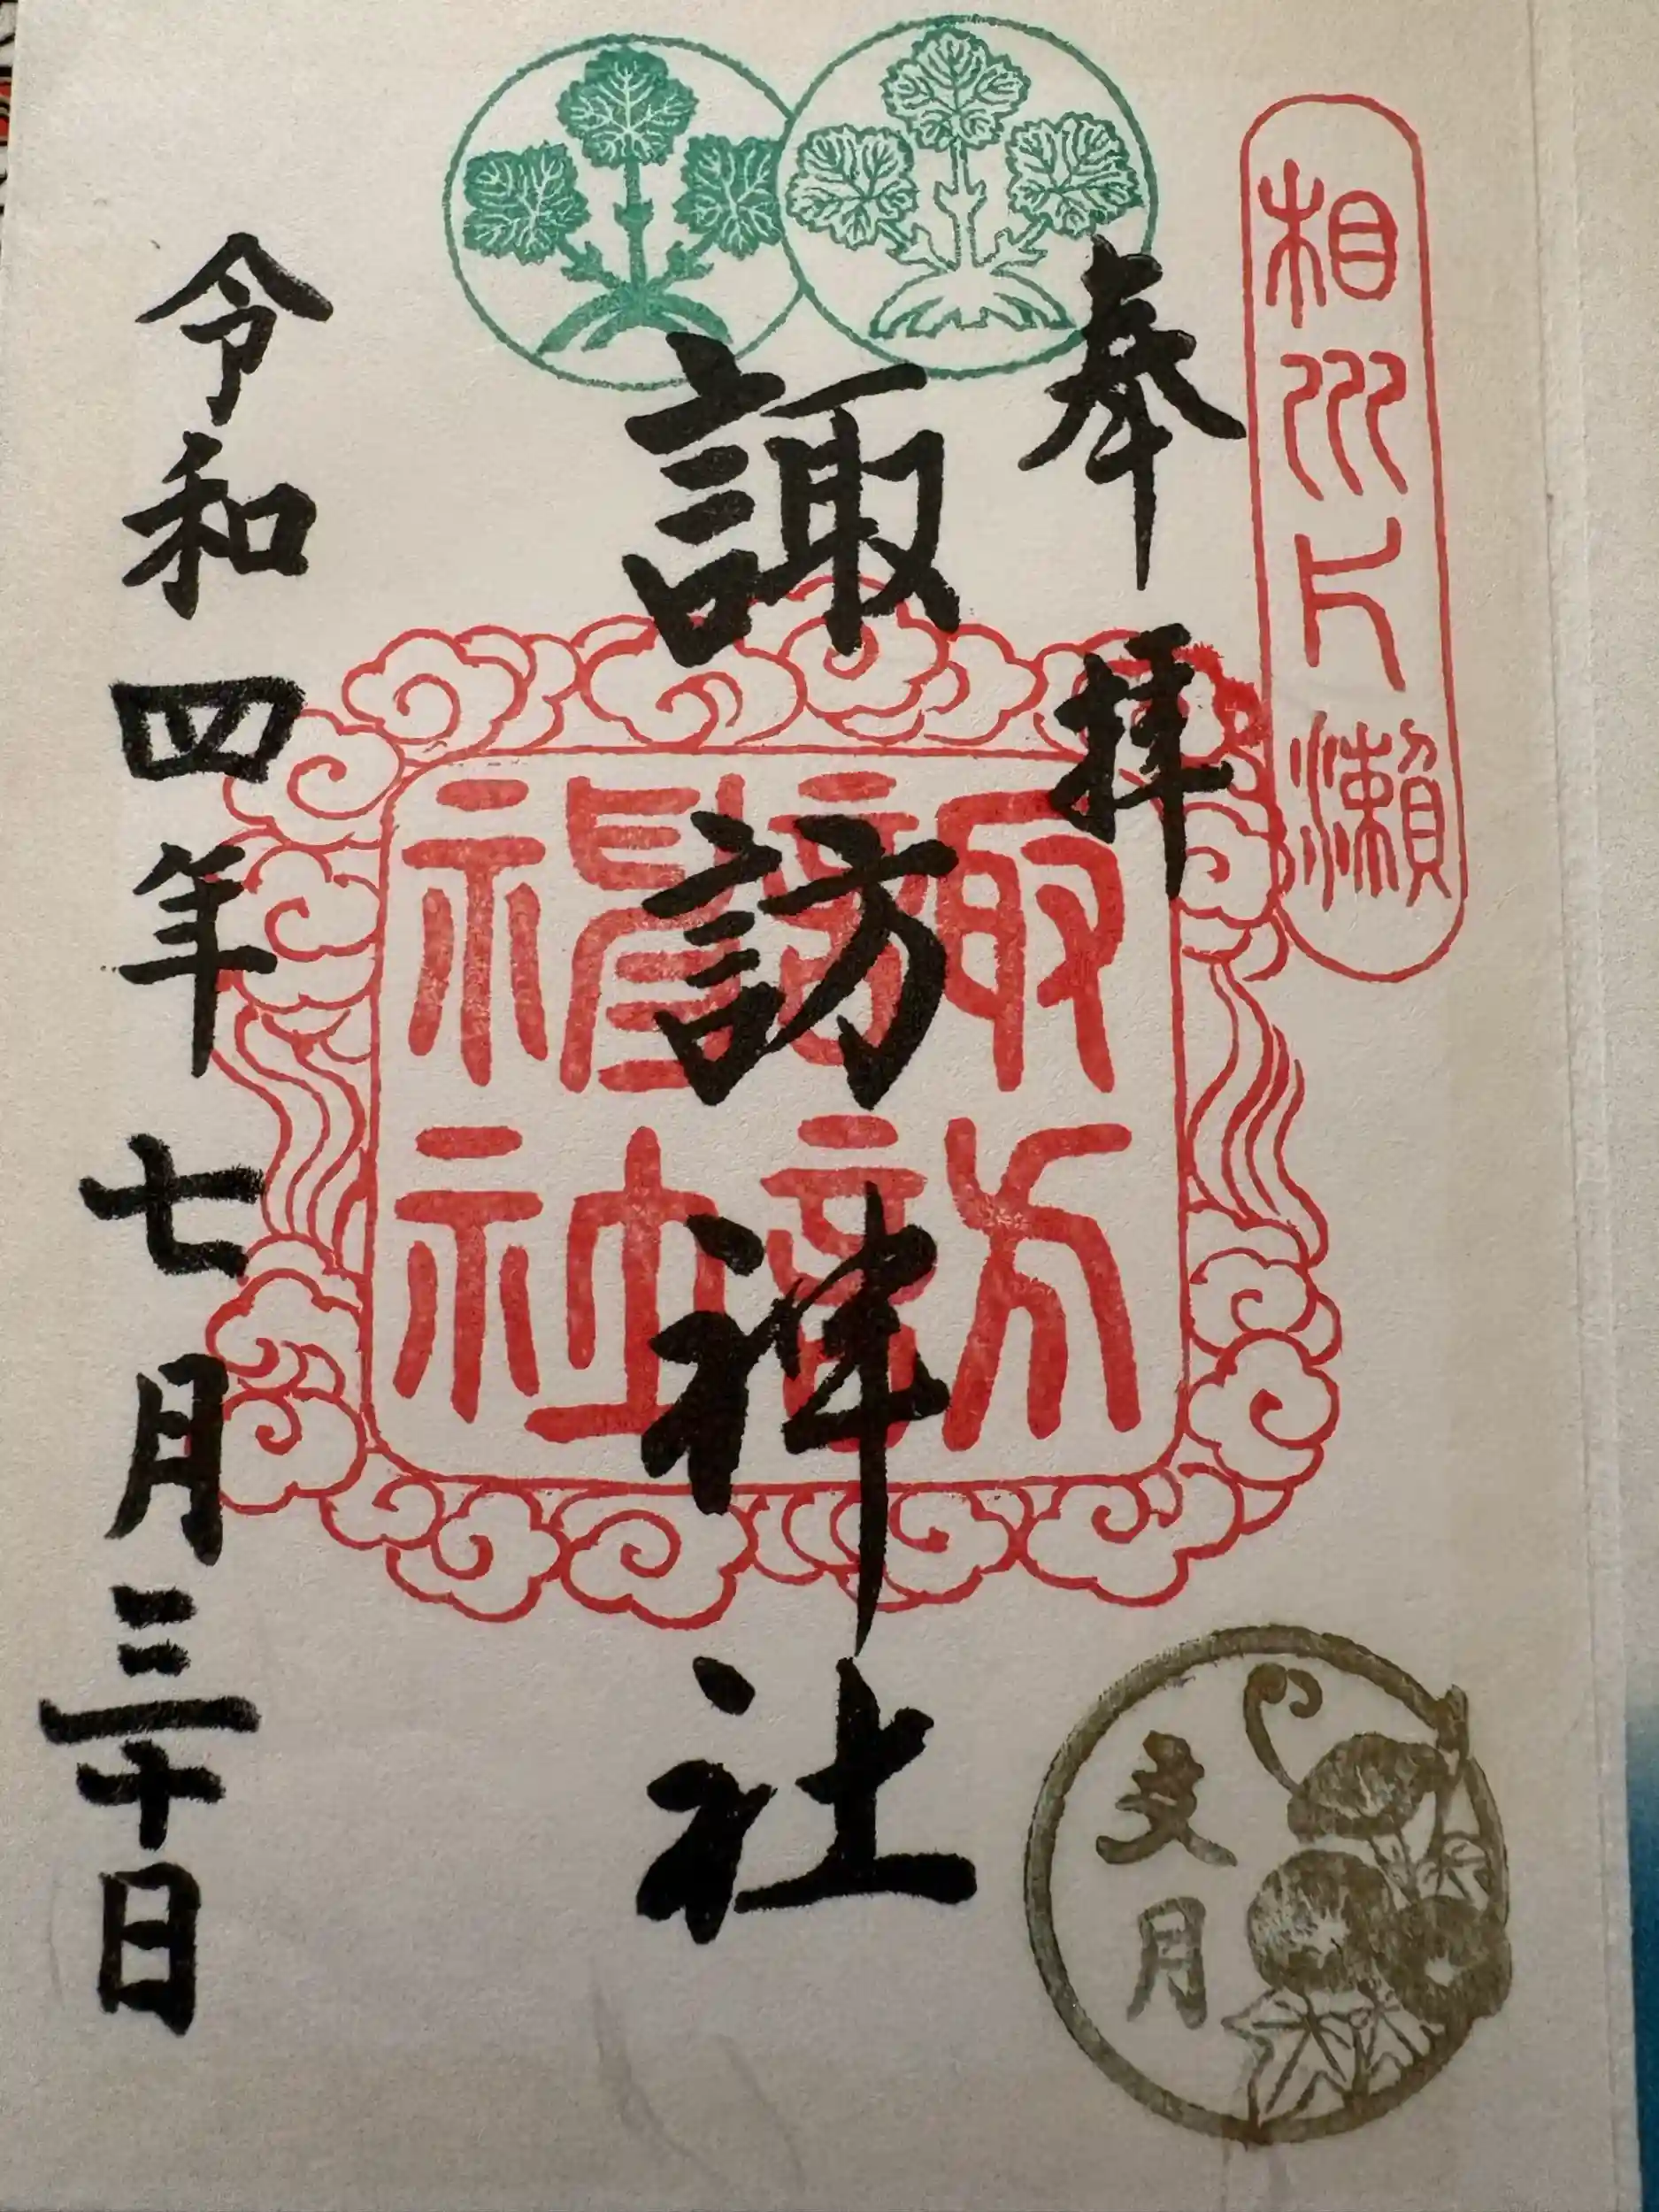 相州片瀬
奉拝
諏訪神社
諏訪神社
令和四年七月三十日
文月